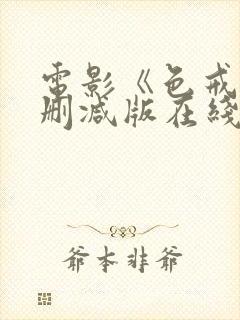 電影《色戒
删减版在綫
爺本非爺